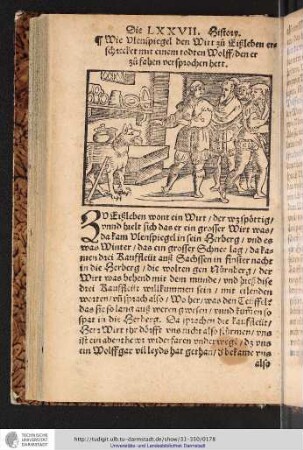 Die LXXVII. History.
¶ Wie Vlenspiegel den Wirt zů Eißleben er-
schrecket mit einem todten Wolff / den er
zů fahen versprochen hett.
ZV Eißleben wont ein Wirt / der wz spöttig /
vnnd hielt sich das er ein grosser Wirt was /
da kam Vlenspiegel in sein Herberg / vnd es
was Winter / das ein grosser Schnee lag / da ka-
men drei Kauffleüt auß Sachssen in finster nacht
in die Herberg / die wolten gen Nürnberg / der
Wirt was behend mit dem munde / vnd hieß dise
drei Kauffleüt willkummen sein / mit eilenden
worten / vñ sprach also / Wo her, was den Teüffel
das jr so lang auß weren gwesen / vnnd kumen so
spat in die Herberg. Da sprachen die kaufleüt /
Herr Wirt jhr dörfft vns nicht also kürmen / vns
ist ein abentheür widerfaren vnderwegē / dz vns
ein Wolff gar vil leyds hat gethan / d bekame vns
also
TECHNISCHE
UNIVERSITÄT
DARMSTADT
http://tudigit.ulb.tu-darmstadt.de/show/33-350/0178
Universitäts- und Landesbibliothek Darmstadt